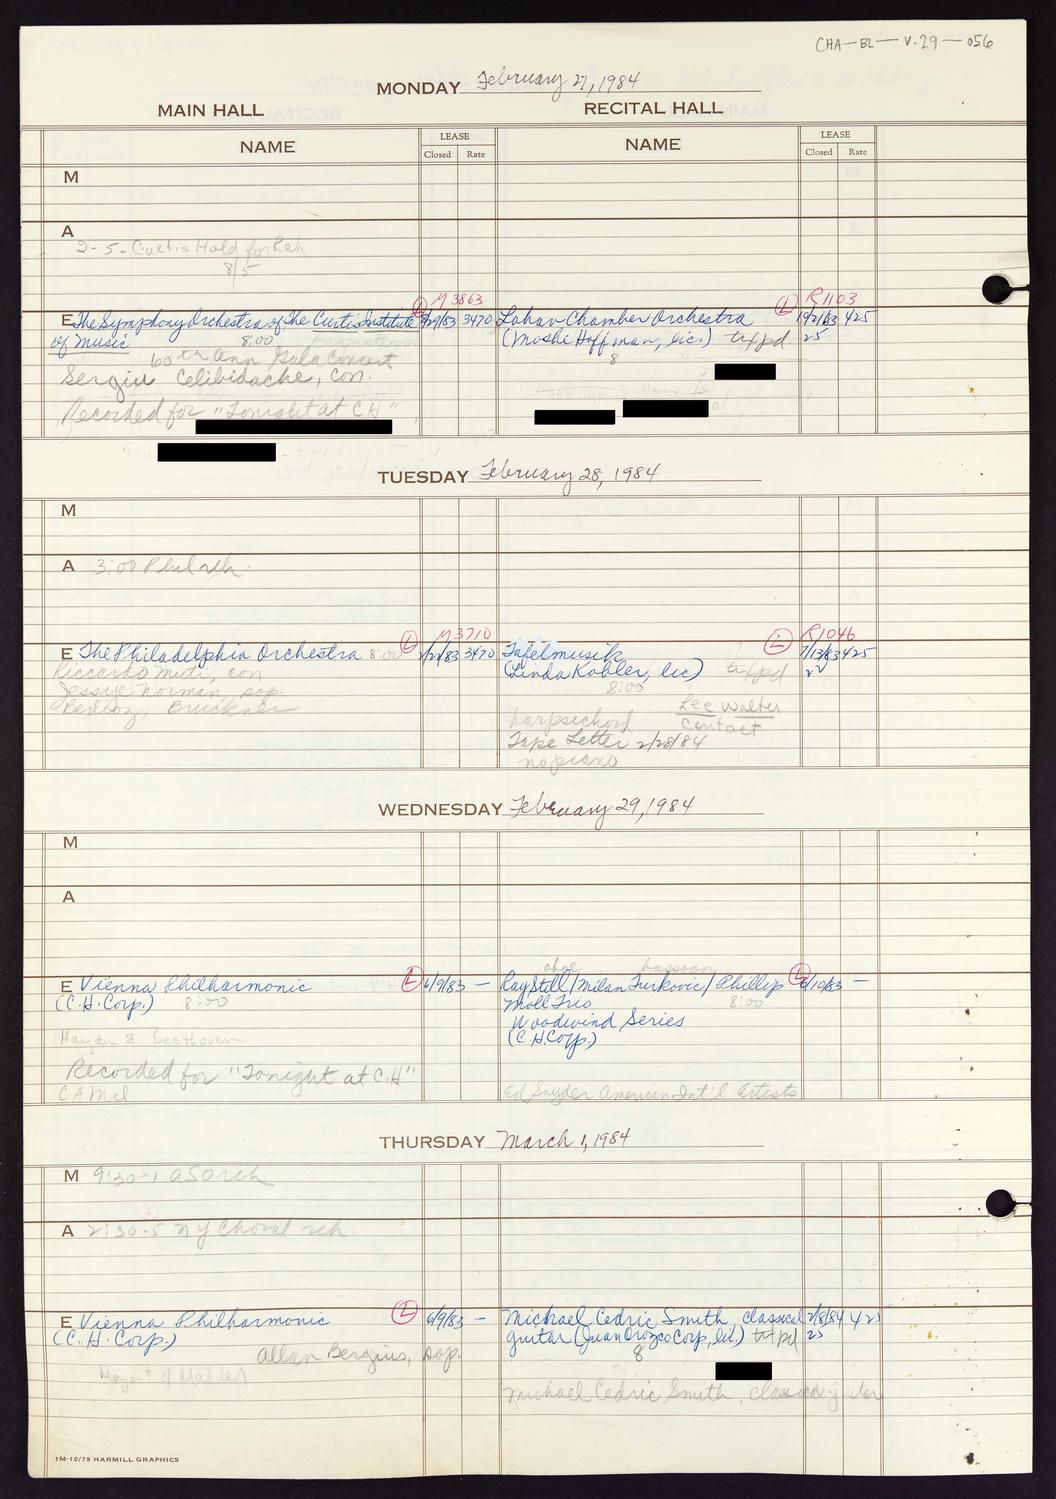 CHA-BL-V.29-056
MONDAY February 27, 1984
MAIN HALL
RECITAL HALL
NAME
LEASE
Closed Rate
NAME
LEASE
Closed Rate
M
A
2-5- Curtis Hold for Reh
8/5
M 3863
R1103
E The Symphony Orchestra of The Curtis Institute
of Music
L
3470
8:00
60th Ann Gala Concert
Sergiu Celibidache, con.
Recorded for "Tonight at CH"
Lahav Chamber Orchestra
L
425
(Moshe Hoffman, lic.) txpd
25
8
TUESDAY February 28, 1984
M
A 3:00 Phil reh.
M3710
R1046
E The Philadelphia Orchestra 8:00
L
3470
Riccardo Muti, con
Jessye Norman, sop.
Berlioz, Bruckner
Tafelmusik
L
7/13/83 425
(Linda Kobler, lic) txpd
8:00
harpsichord
Lee Walter
Contact
Tape Letter 2/28/84
no piano
WEDNESDAY February 29, 1984
M
A
E Vienna Philharmonic
L
6/9/83 —
(C.H. Corp.) 8:00
Haydn & Beethoven
Recorded for "Tonight at C.H"
CAMI
oboe bassoon
Ray Still/Milan Turkovic/Phillip
L
6/10/83 —
Moll Trio 8:00
Woodwind Series
(C.H. Corp.)
Ed Snyder American Int'l Artists
THURSDAY March 1, 1984
M 9:30-1 ASO reh
A 2:30-5 NY Choral reh.
E Vienna Philharmonic
L
6/9/83 —
(C.H. Corp.)
Allan Bergius, sop.
Mozart & Mahler
Michael Cedric Smith, classical
2/8/84 425
guitar (Juan Orozco Corp, lic.) txpd
25
8
Michael Cedric Smith, classical guitar
1M-10/79 HARMILL GRAPHICS